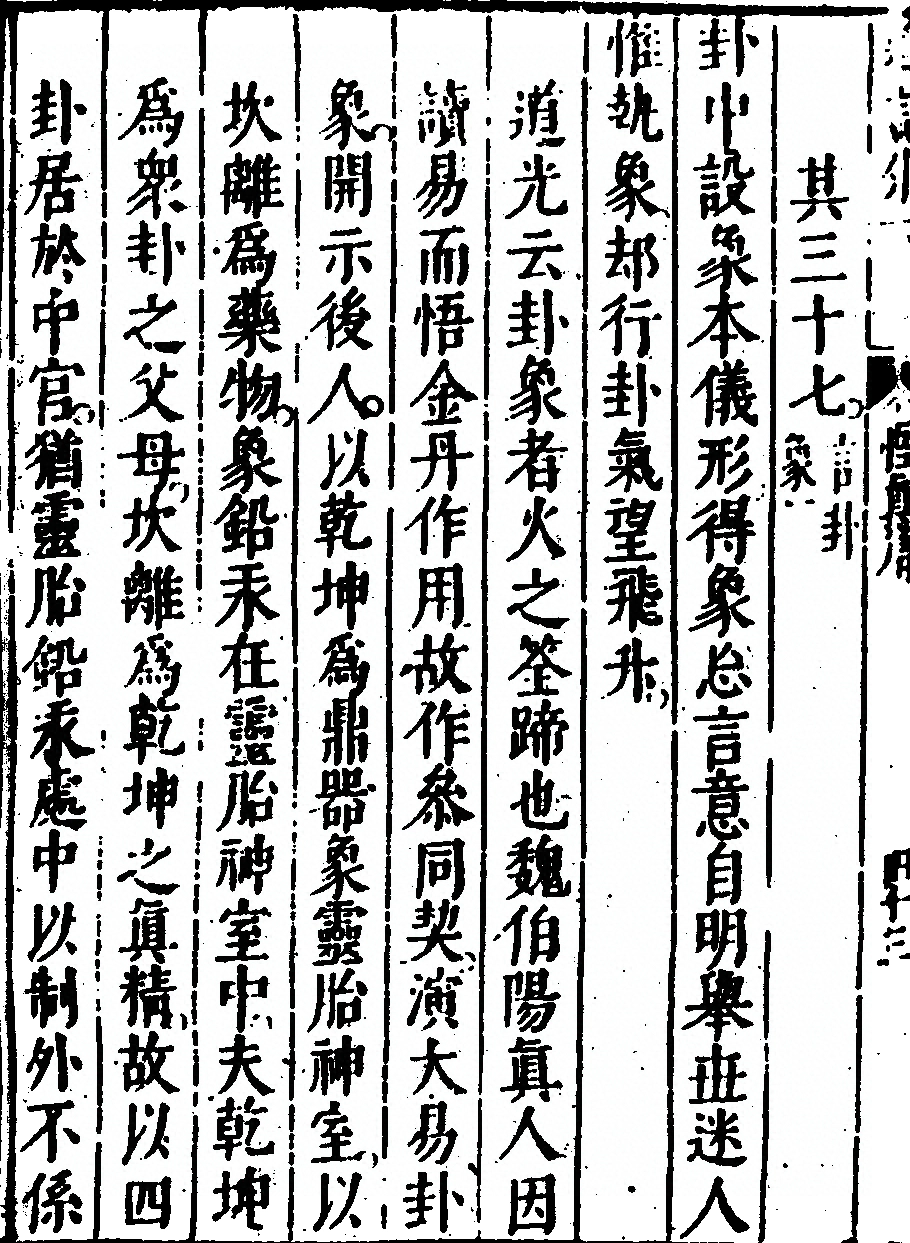 其三十七言卦象
卦中設象本儀形得象忘言意自明舉世迷人
惟執象却行卦氣望飛升
道光云卦象者火之筌蹄也魏伯陽眞人因
讀易而悟金丹作用故作參同契演大易卦
象開示後人以乾坤爲鼎器象靈胎神室以
坎離爲藥物象鉛汞在靈胎神室中夫乾坤
爲衆卦之父母坎離爲乾坤之眞精故以四
卦居於中宫猶靈胎鉛汞處中以制外不係